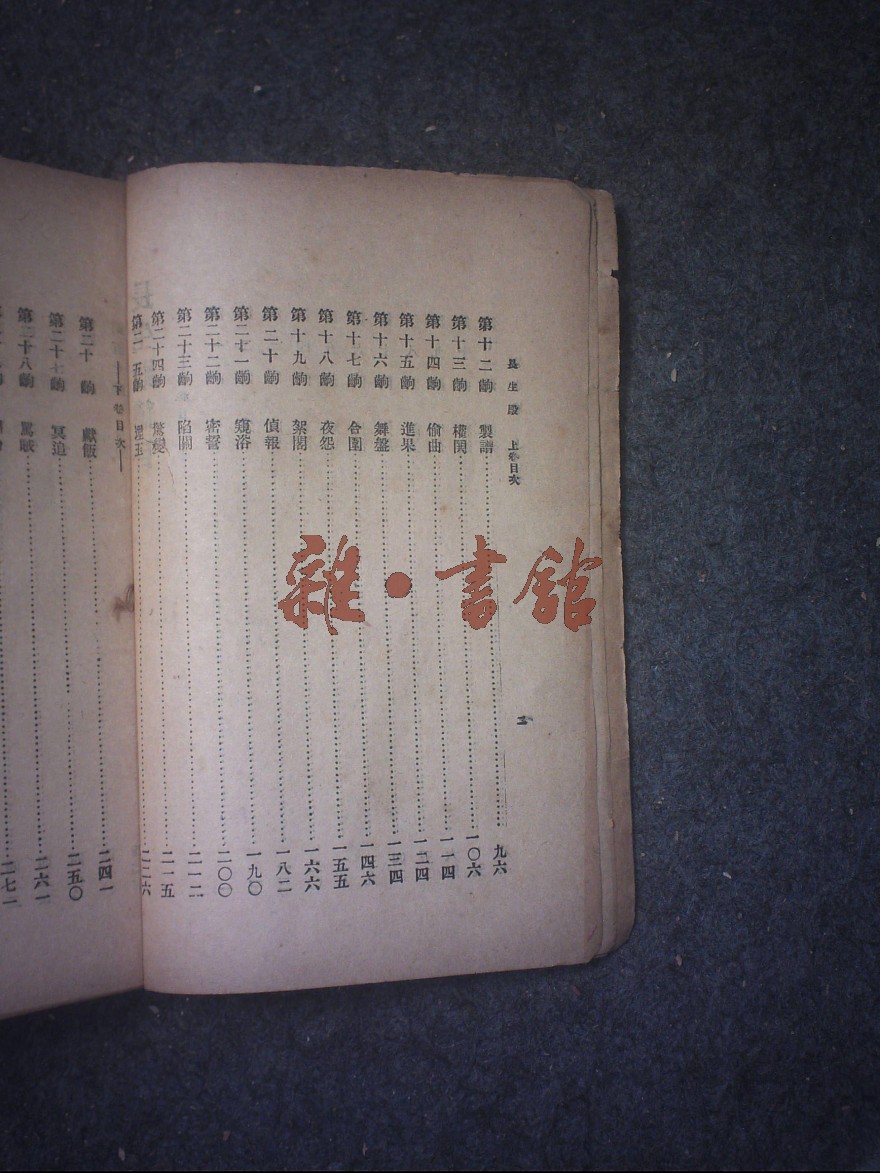 長生殿 上卷目次
第十二齣 製譜……九六
第十三齣 權閧……一〇六
第十四齣 偷曲……一一四
第十五齣 進果……一二四
第十六齣 舞盤……一三四
第十七齣 合圍……一四六
第十八齣 夜怨……一五五
第十九齣 絮閣……一六六
第二十齣 偵報……一八二
第二十一齣 窺浴……一九〇
第二十二齣 密誓……二〇〇
第二十三齣 陷關……二一二
第二十四齣 驚變……二一五
第二十五齣 埋玉……二二六
—下卷目次—
第二十 齣 獻飯……二四一
第二十七齣 冥追……二五〇
第二十八齣 罵賊……二六一
二七一
雜·書館